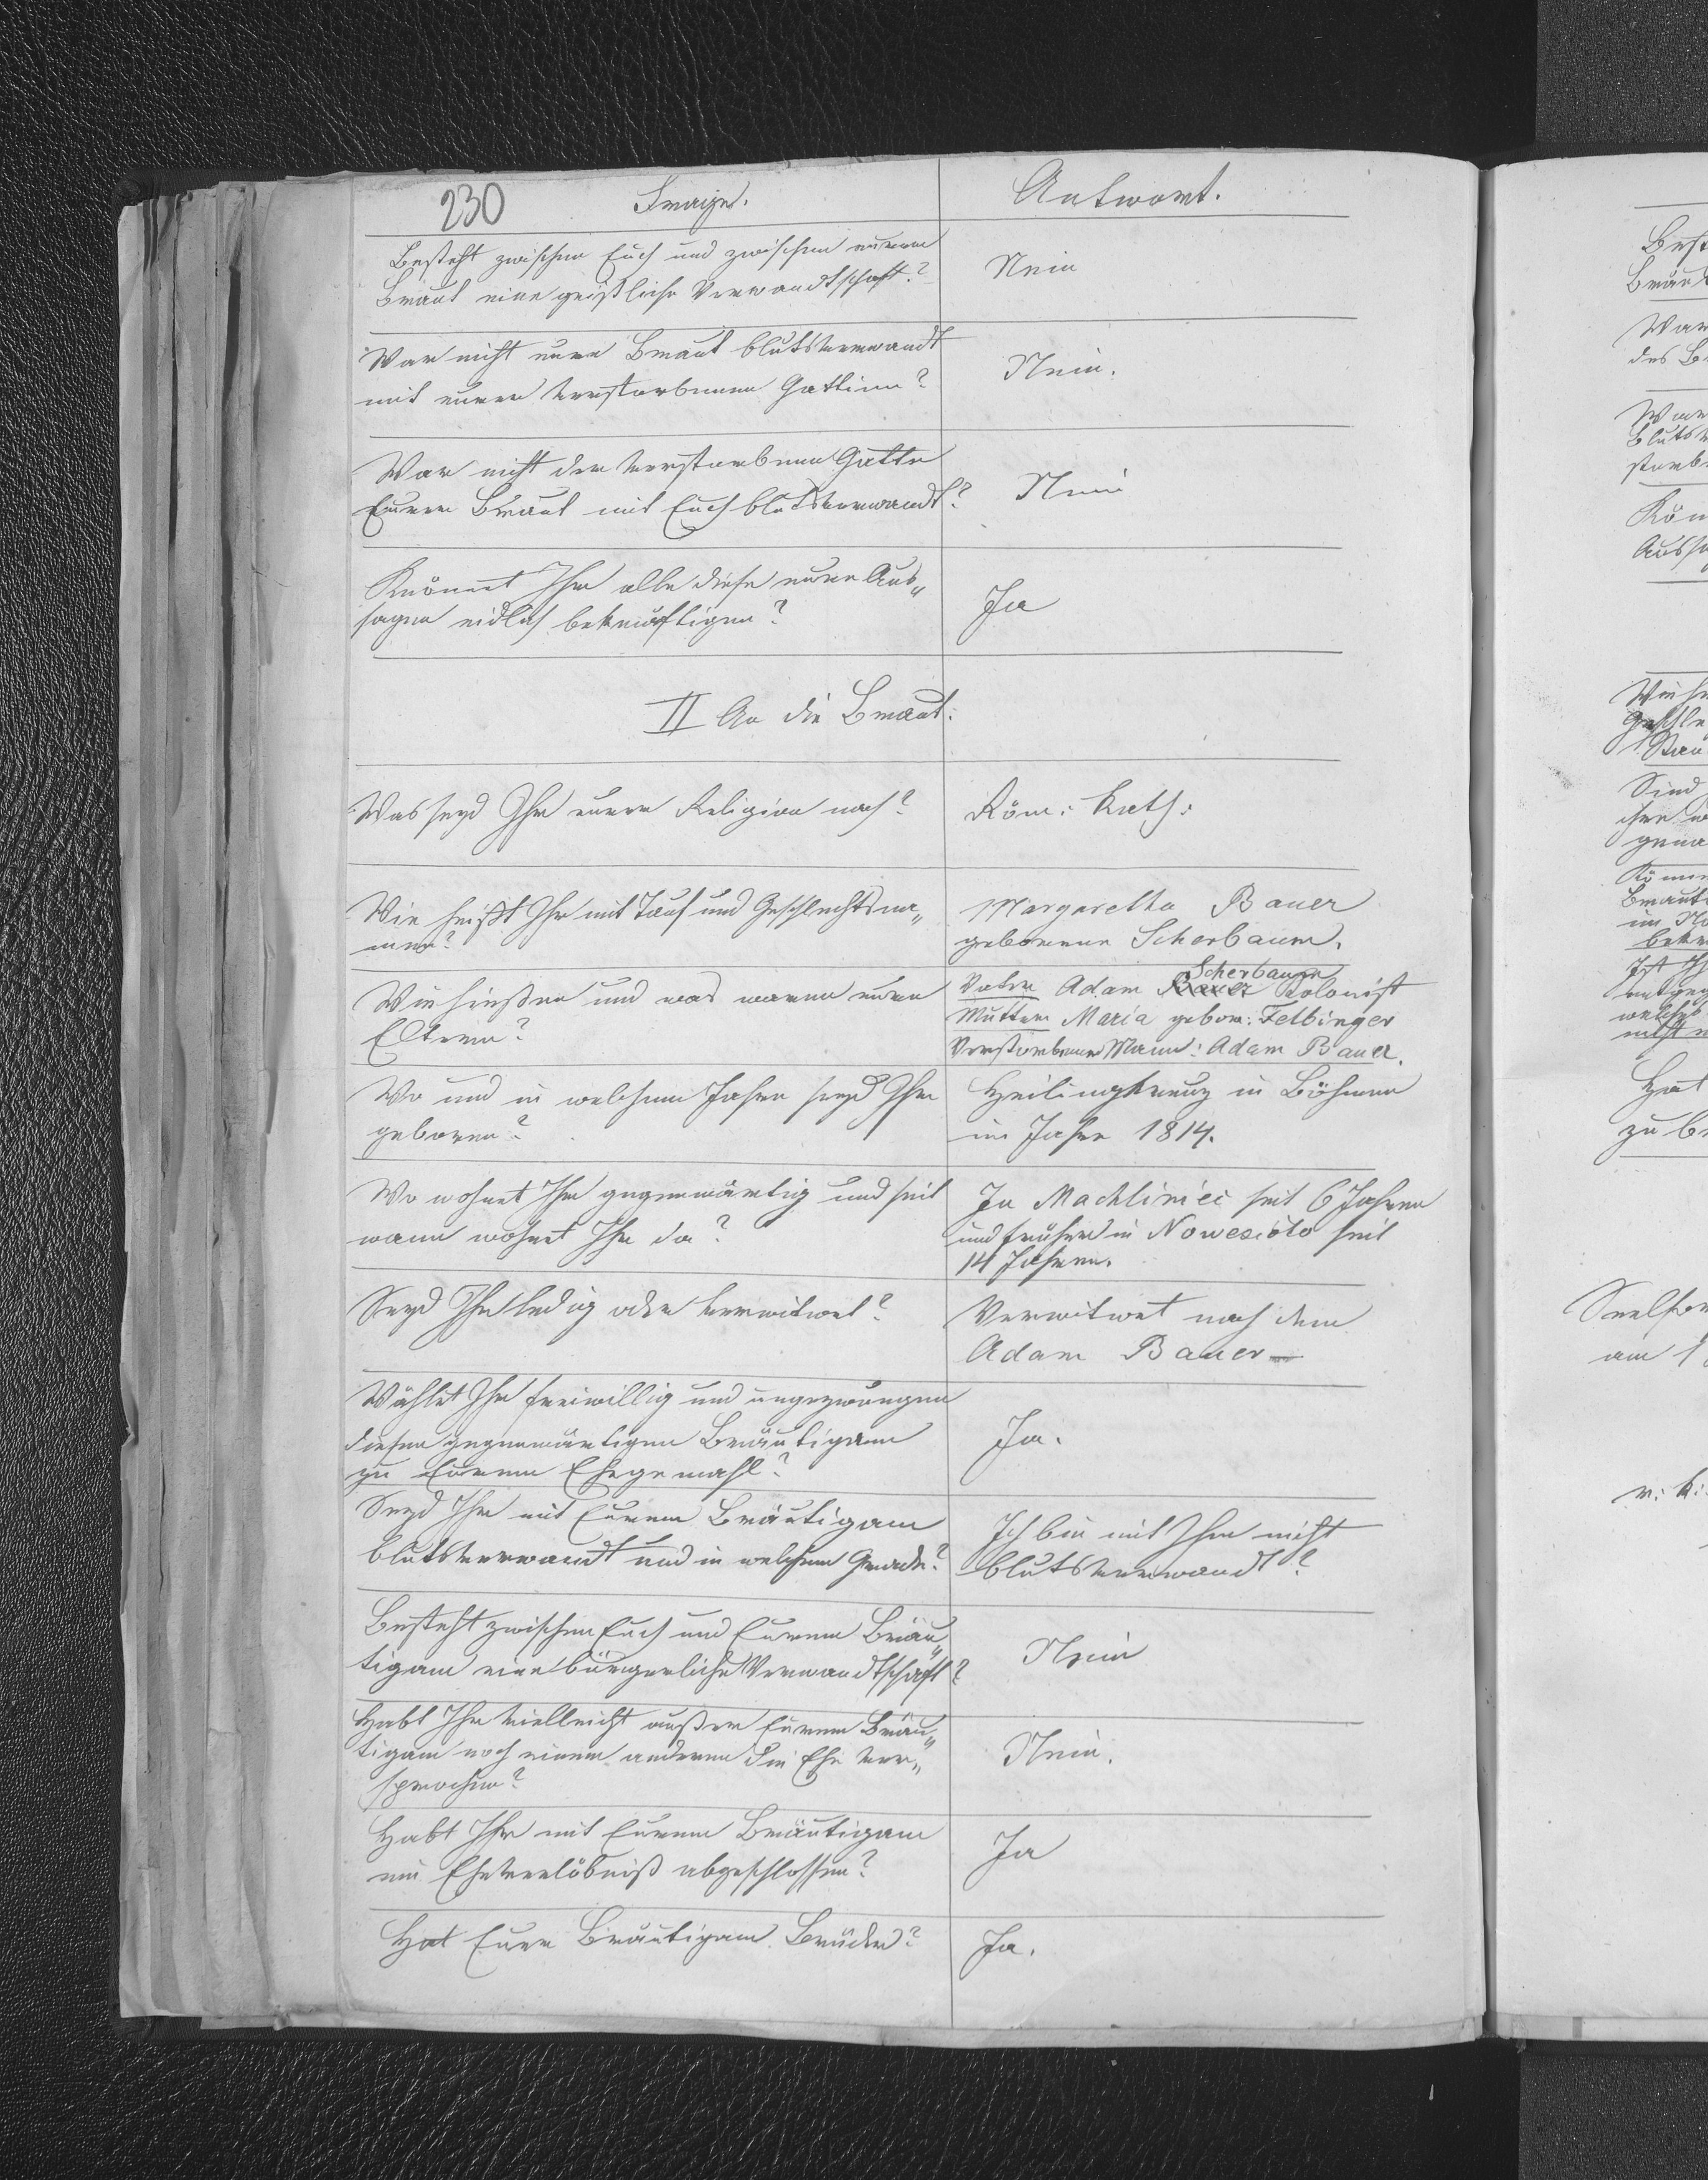 230
Fragen.
Antwort.
Besteht zwischen Euch und zwischen eurer
Braut eine geistliche Verwandtschaft?
Nein
War nicht eure Braut blutsverwandt
mit eurer verstorbenen Gattinn?
Nein.
War nicht der verstorbene Gatte
Eurer Braut mit Euch blutsverwandt?
Nein
Könnet Ihr alle diese eure Aus„
sagen eidlich bekräftigen?
Ja
II An die Braut:
Was seyd Ihr eurer Religion nach?
Röm: Kath:
Wie heißt Ihr mit Tauf und Geschlechtsna„
men?
Margaretha Bauer
geborene Scherbaum.
Wie hießen und was waren eure
Eltern?
Scherbaum
Vater Adam Bauer Kolonist
Mutter Maria gebor: Felbinger
Verstorbener Mann: Adam Bauer.
Wo und in welchem Jahre seyd Ihr
geboren?
Heilingkreuz in Böhmen
im Jahre 1814.
Wo wohnet Ihr gegenwärtig und seit
wann wohnet Ihr da?
In Machliniec seit 6 Jahren
und früher in Nowesioło seit
14 Jahren.
Seyd Ihr ledig oder verwitwet?
Verwitwet nach dem
Adam Bauer —
Wählet Ihr freiwillig und ungezwungen
diesen gegenwärtigen Bräutigam
zu Eurem Ehegemahl?
Ja.
Seyd Ihr mit Eurem Bräutigam
blutsverwandt und in welchem Grade?
Ich bin mit Ihm nicht
blutsverwandt?
Besteht zwischen Euch und Eurem Bräu„
tigam eine bürgerliche Verwandtschaft?
Nein
Habt Ihr vielleicht außer Eurem Bräu„
tigam noch einem anderen die Ehe ver„
sprochen?
Nein.
Habt Ihr mit Eurem Bräutigam
ein Eheverlöbniß abgeschlossen?
Ja
Hat Euer Bräutigam Brüder?
Ja.